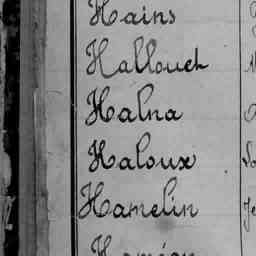 Hains
Hallouet
Halna
Haloux
Hamelin